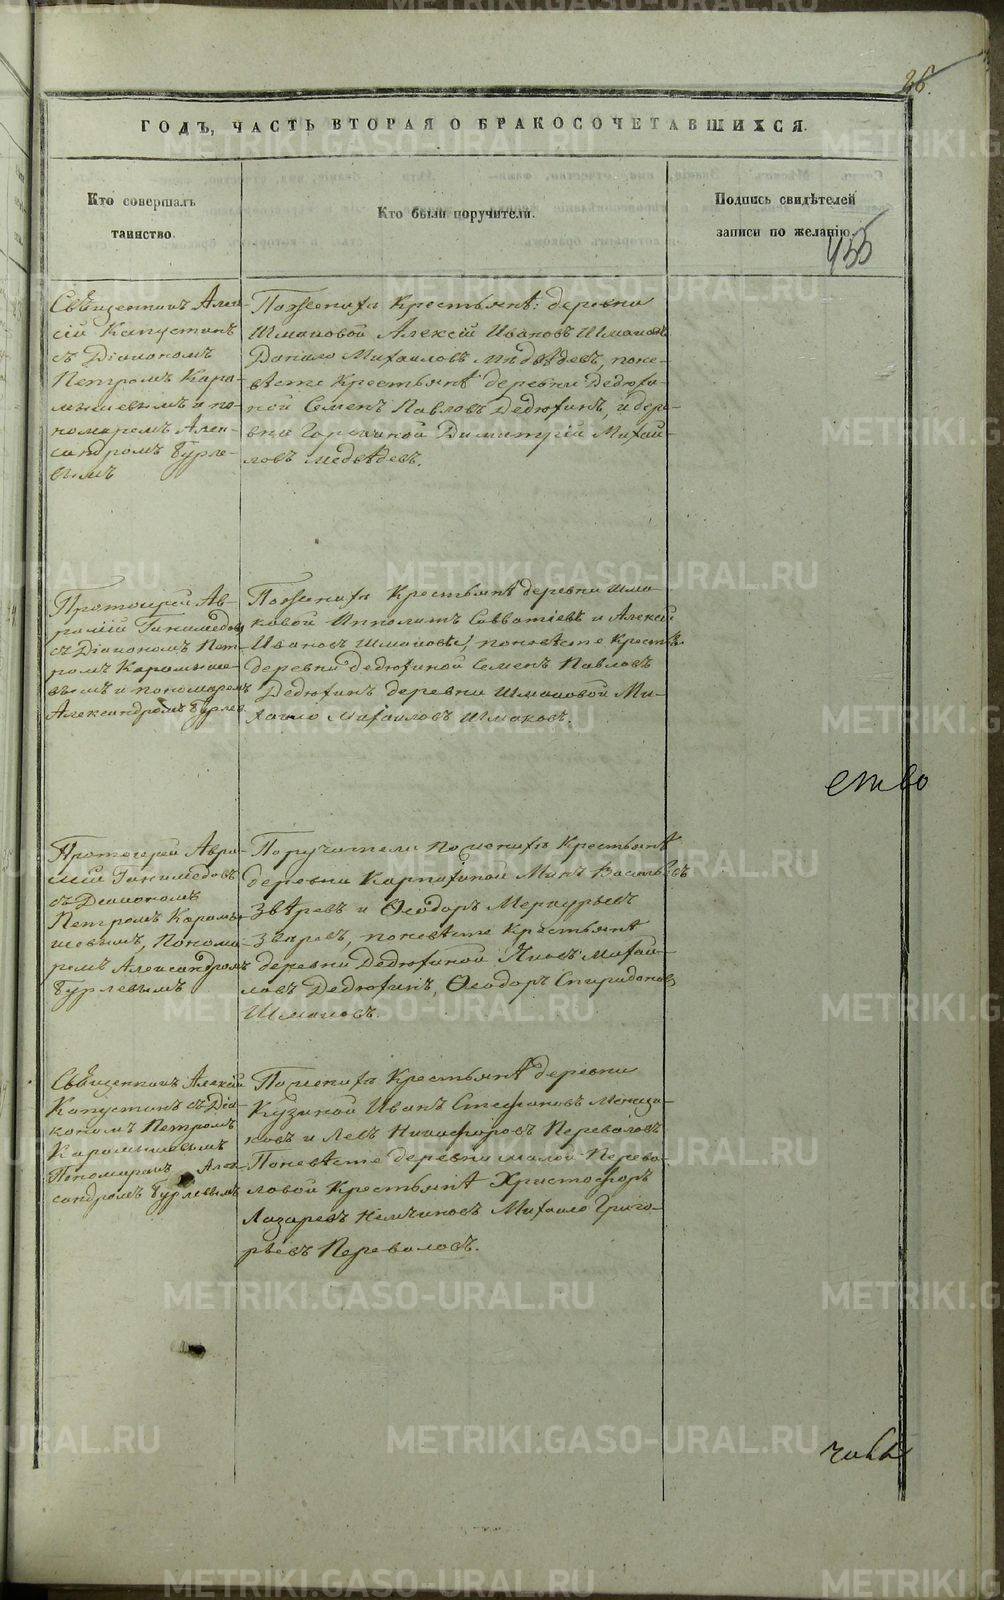 26.
ГОДЪ, ЧАСТЬ ВТОРАЯ О БРАКОСОЧЕТАВШИХСЯ.
Кто совершалъ
таинство.
Кто были поручители.
Подпись свидѣтелей
записи по желанію.
455
Священникъ Алек-
сій Капустинъ
съ Діакономъ
Петромъ Каро-
и по-
номаремъ Алек-
сандромъ Бурле-
вымъ
По женихѣ Крестьянѣ: деревни
Шмаковой Алексій Ивановъ Шмаковъ
Данило Михайловъ Медвѣдевъ, поне-
вѣстѣ Крестьянѣ деревни Дедюхи-
ной Семенъ Павловъ Дедюхинъ, и дере-
вни Димитрій Михай-
ловъ Медвѣдевъ.
Протоіерей Ав-
рамій Ганимедовъ
съ Діакономъ Пет-
ромъ
и пономаремъ
Александромъ Бурлев.
По женихѣ Крестьянѣ деревни Шма-
ковой Ипполитъ Савватіевъ и Алексій
Ивановъ Шмаковы, поневѣстѣ Крестьян.
деревни Дедюхиной Семенъ Павловъ
Дедюхинъ деревни Шмаковой Ми-
хаило Михайловъ Шмаковъ.
ство
Протоіерей Авра-
мій Ганимедовъ
съ Діакономъ
Петромъ
Понома-
ремъ Александромъ
Бурлевымъ
Поручители по женихѣ Крестьянѣ
деревни Карпихиной Минъ Васильевъ
Звѣревъ и Ѳеодоръ Меркурьевъ
Звѣревъ, поневѣстѣ Крестьянѣ
деревни Дедюхиной Яковъ Михай-
ловъ Дедюхинъ, Ѳеодоръ Спиридоновъ
Шмаковъ.
Священникъ Алексій
Капустинъ съ Діа-
кономъ Петромъ
Пономаремъ Алек-
сандромъ Бурлевымъ
По женихѣ Крестьянѣ деревни
Кузиной Иванъ Стефановъ
и Левъ Никифоровъ Переваловъ
Поневѣстѣ деревни малой Перева-
ловой Крестьянѣ Христофоръ
Лазаревъ Немчиновъ Михаило Григо-
рьевъ Переваловъ.